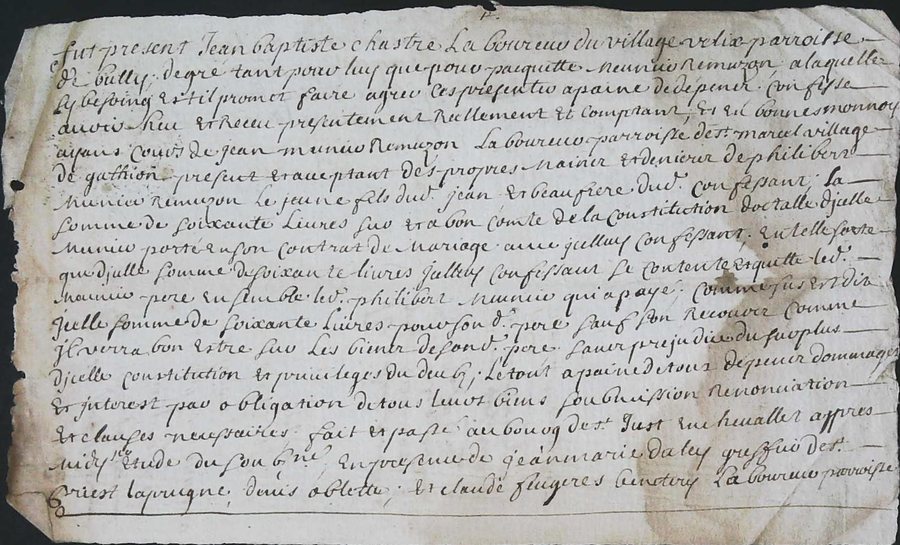 fut present Jean baptiste chastre Laboureur du village parroisse
de bully, de gré tant pour luy que pour pacquette Meunier Remuzon a laquelle
sy besoing est il promet faire agreer ces presentes a paine de depens, Confesse
avoir heu et Receu presentement Reellement et Comptant, et en bonnes monnoy
ayans Cours de Jean munier Remuzon Laboureur parroisse de st marcel village
de gathion present et acceptant des propres Mains et deniers de philibert
Munier Remuzon Le jeune fils dud. jean et beaufrere dud. Confessant, La
somme de soixante Livres sur et a bon comte de la Constitution doctalle djcelle
Munier porté en son Contrat de Mariage avec jcelluy Confessant. En telle sorte
que djcelle somme de soixante livres jcelluy Confessant se Contente et quitte led.
Meunier pere ensemble led. philibert Munier qui a payé, Comme sus est dit
jcelle somme de soixante Livres pour son d. pere sauf son Recouvir Comme
jl verra bon estre sur Les biens de son d. pere sans prejudice du surplus
djcelle Constitution et privileges du deub, Le tout a paine de tous depens dommages
Et jnterest par obligation de tous leurs biens soubmission Renonciation
Et clauses necessaires. fait et passé au bourg de st Just en chevallet appres
Midy Etude du soubné, En presence de jean marie greffier de st
priest laprugne, denis oblette, Et claude fugeres Laboureur parroisse